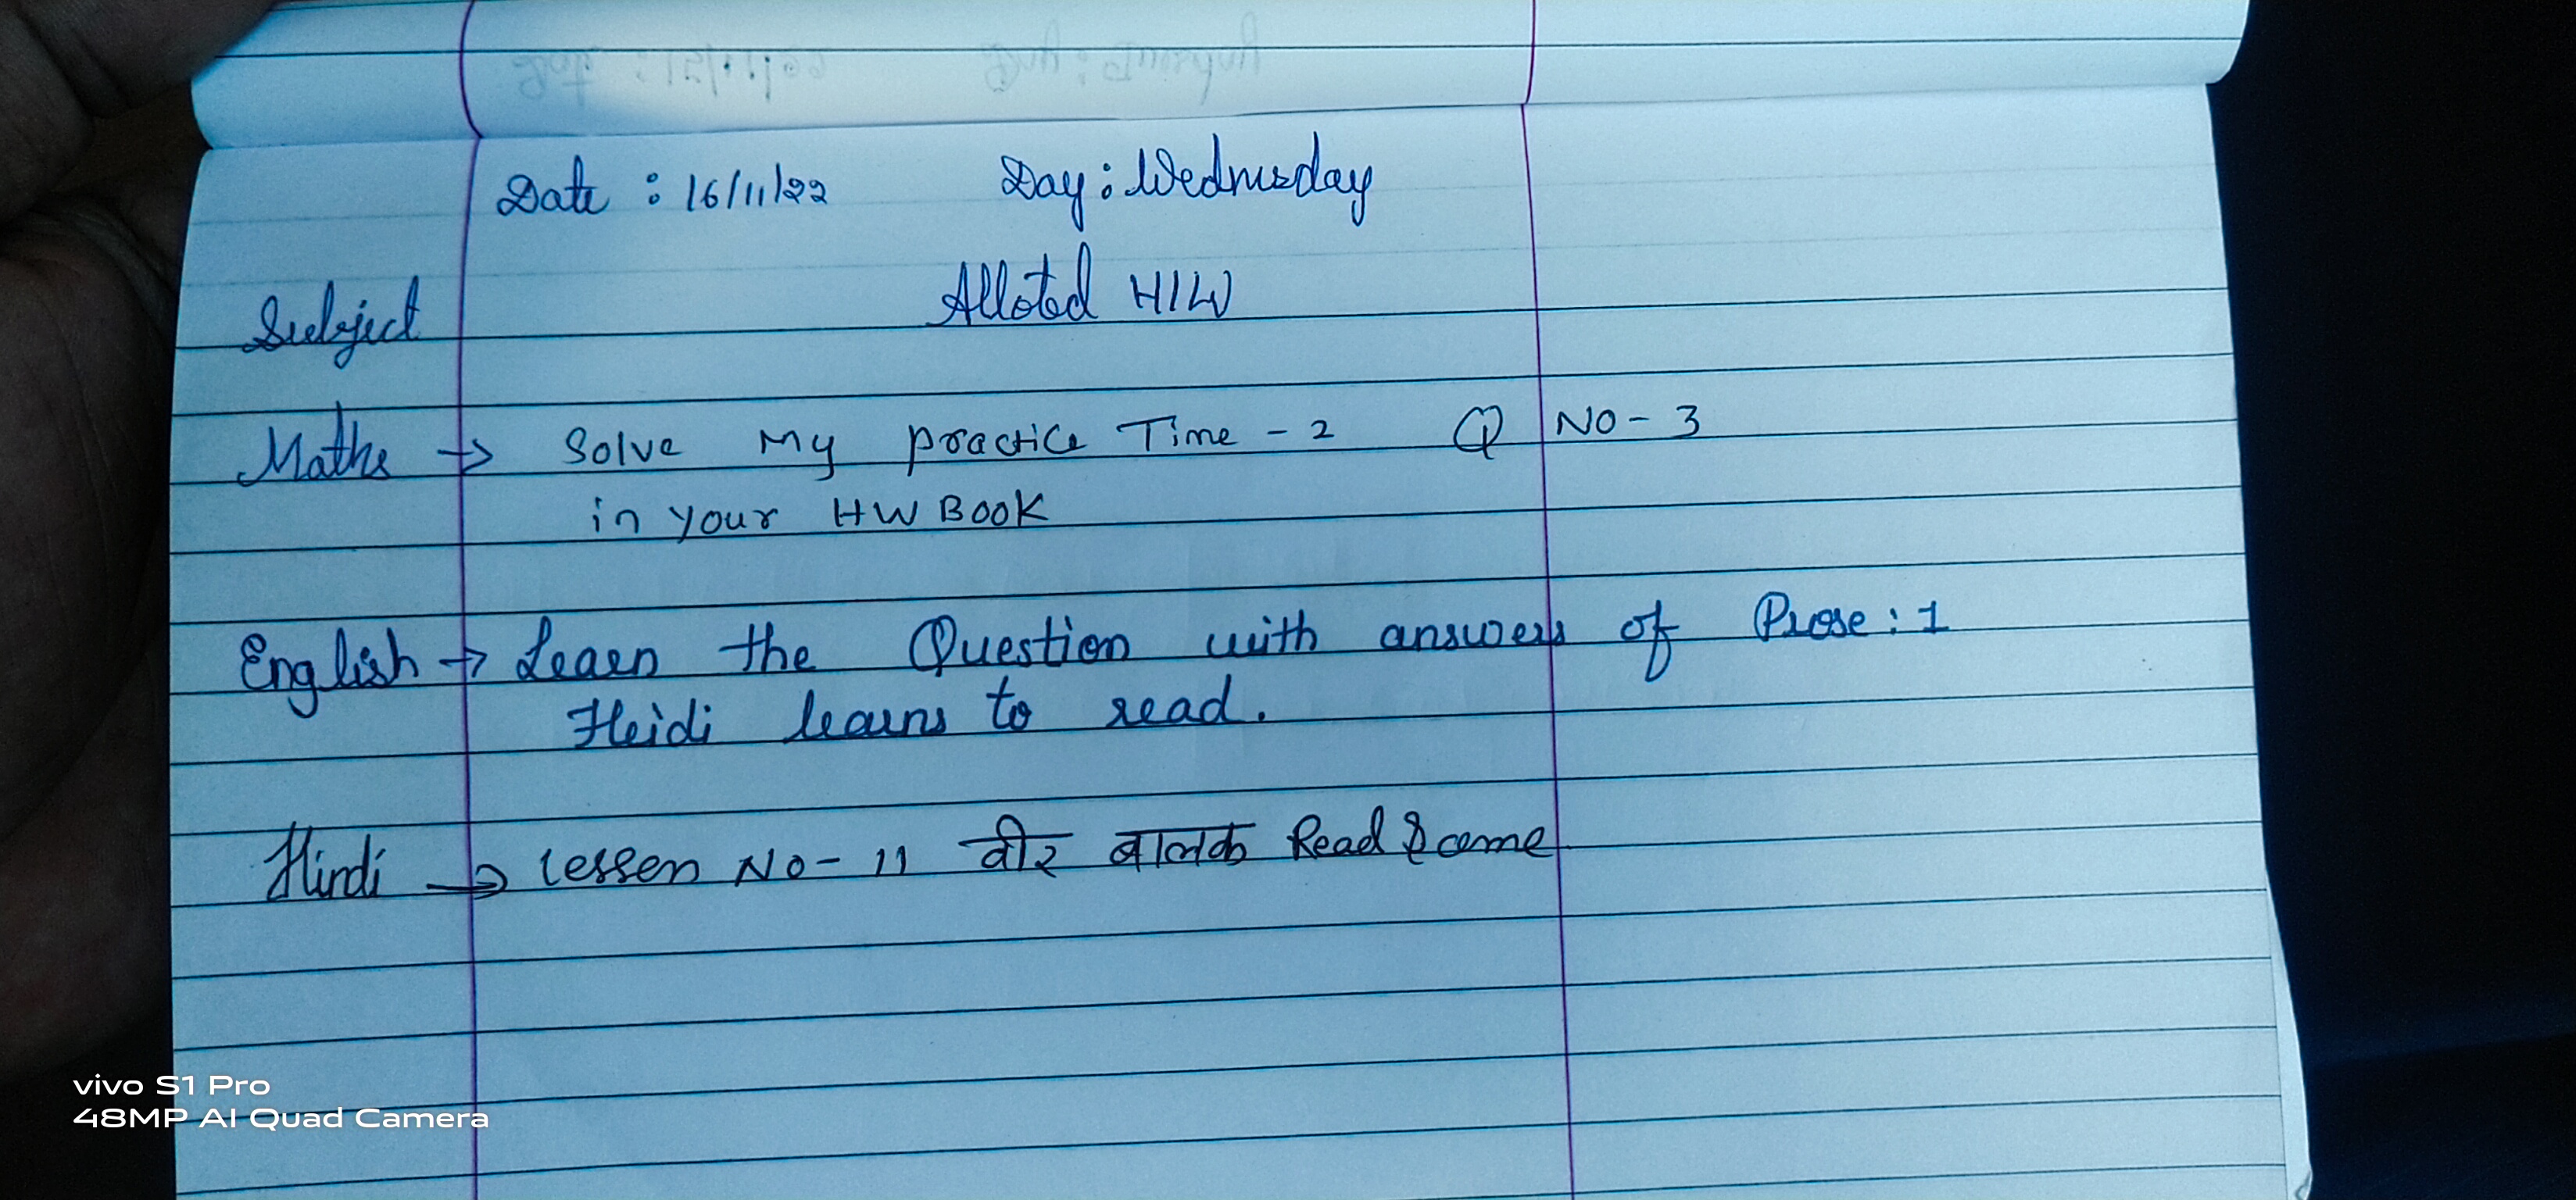 Date : 16/11/22 Day : Wednesday
Subject Alloted H/W
Maths → Solve My practice Time - 2 Q NO - 3
in your HW BOOK
English → Learn the Question with answers of Prose : 1
Heidi learns to read.
Hindi → Lessen No - 11 वीर बालक Read & come
vivo S1 Pro
48MP AI Quad Camera